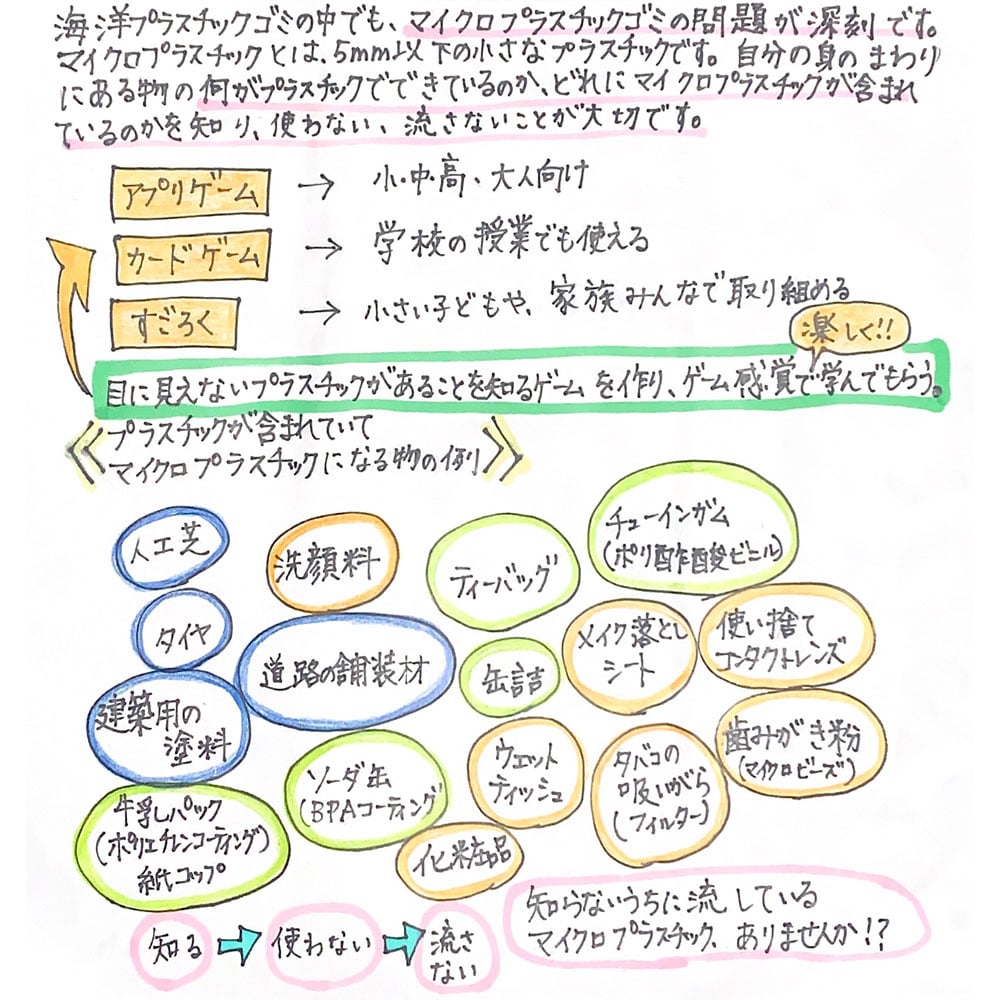 海洋プラスチックゴミの中でも、マイクロプラスチックゴミの問題が深刻です。
マイクロプラスチックとは、5mm以下の小さなプラスチックです。自分の身のまわり
にある物の何がプラスチックでできているのか、どれにマイクロプラスチックが含まれ
ているのかを知り、使わない、流さないことが大切です。
アプリゲーム → 小・中・高、大人向け
カードゲーム → 学校の授業でも使える
すごろく → 小さい子どもや、家族みんなで取り組める
楽しく!!
目に見えないプラスチックがあることを知るゲームを作り、ゲーム感覚で学んでもらう。
《プラスチックが含まれていて
マイクロプラスチックになる物の例》
人工芝
洗顔料
ティーバッグ
チューインガム
(ポリ酢酸ビニル)
タイヤ
道路の舗装材
缶詰
メイク落とし
シート
使い捨て
コンタクトレンズ
建築用の
塗料
ソーダ缶
(BPAコーティング)
ウェット
ティッシュ
タバコの
吸いがら
(フィルター)
歯みがき粉
(マイクロビーズ)
牛乳パック
(ポリエチレンコーティング)
紙コップ
化粧品
知る → 使わない → 流さ
ない
知らないうちに流している
マイクロプラスチック、ありませんか!?